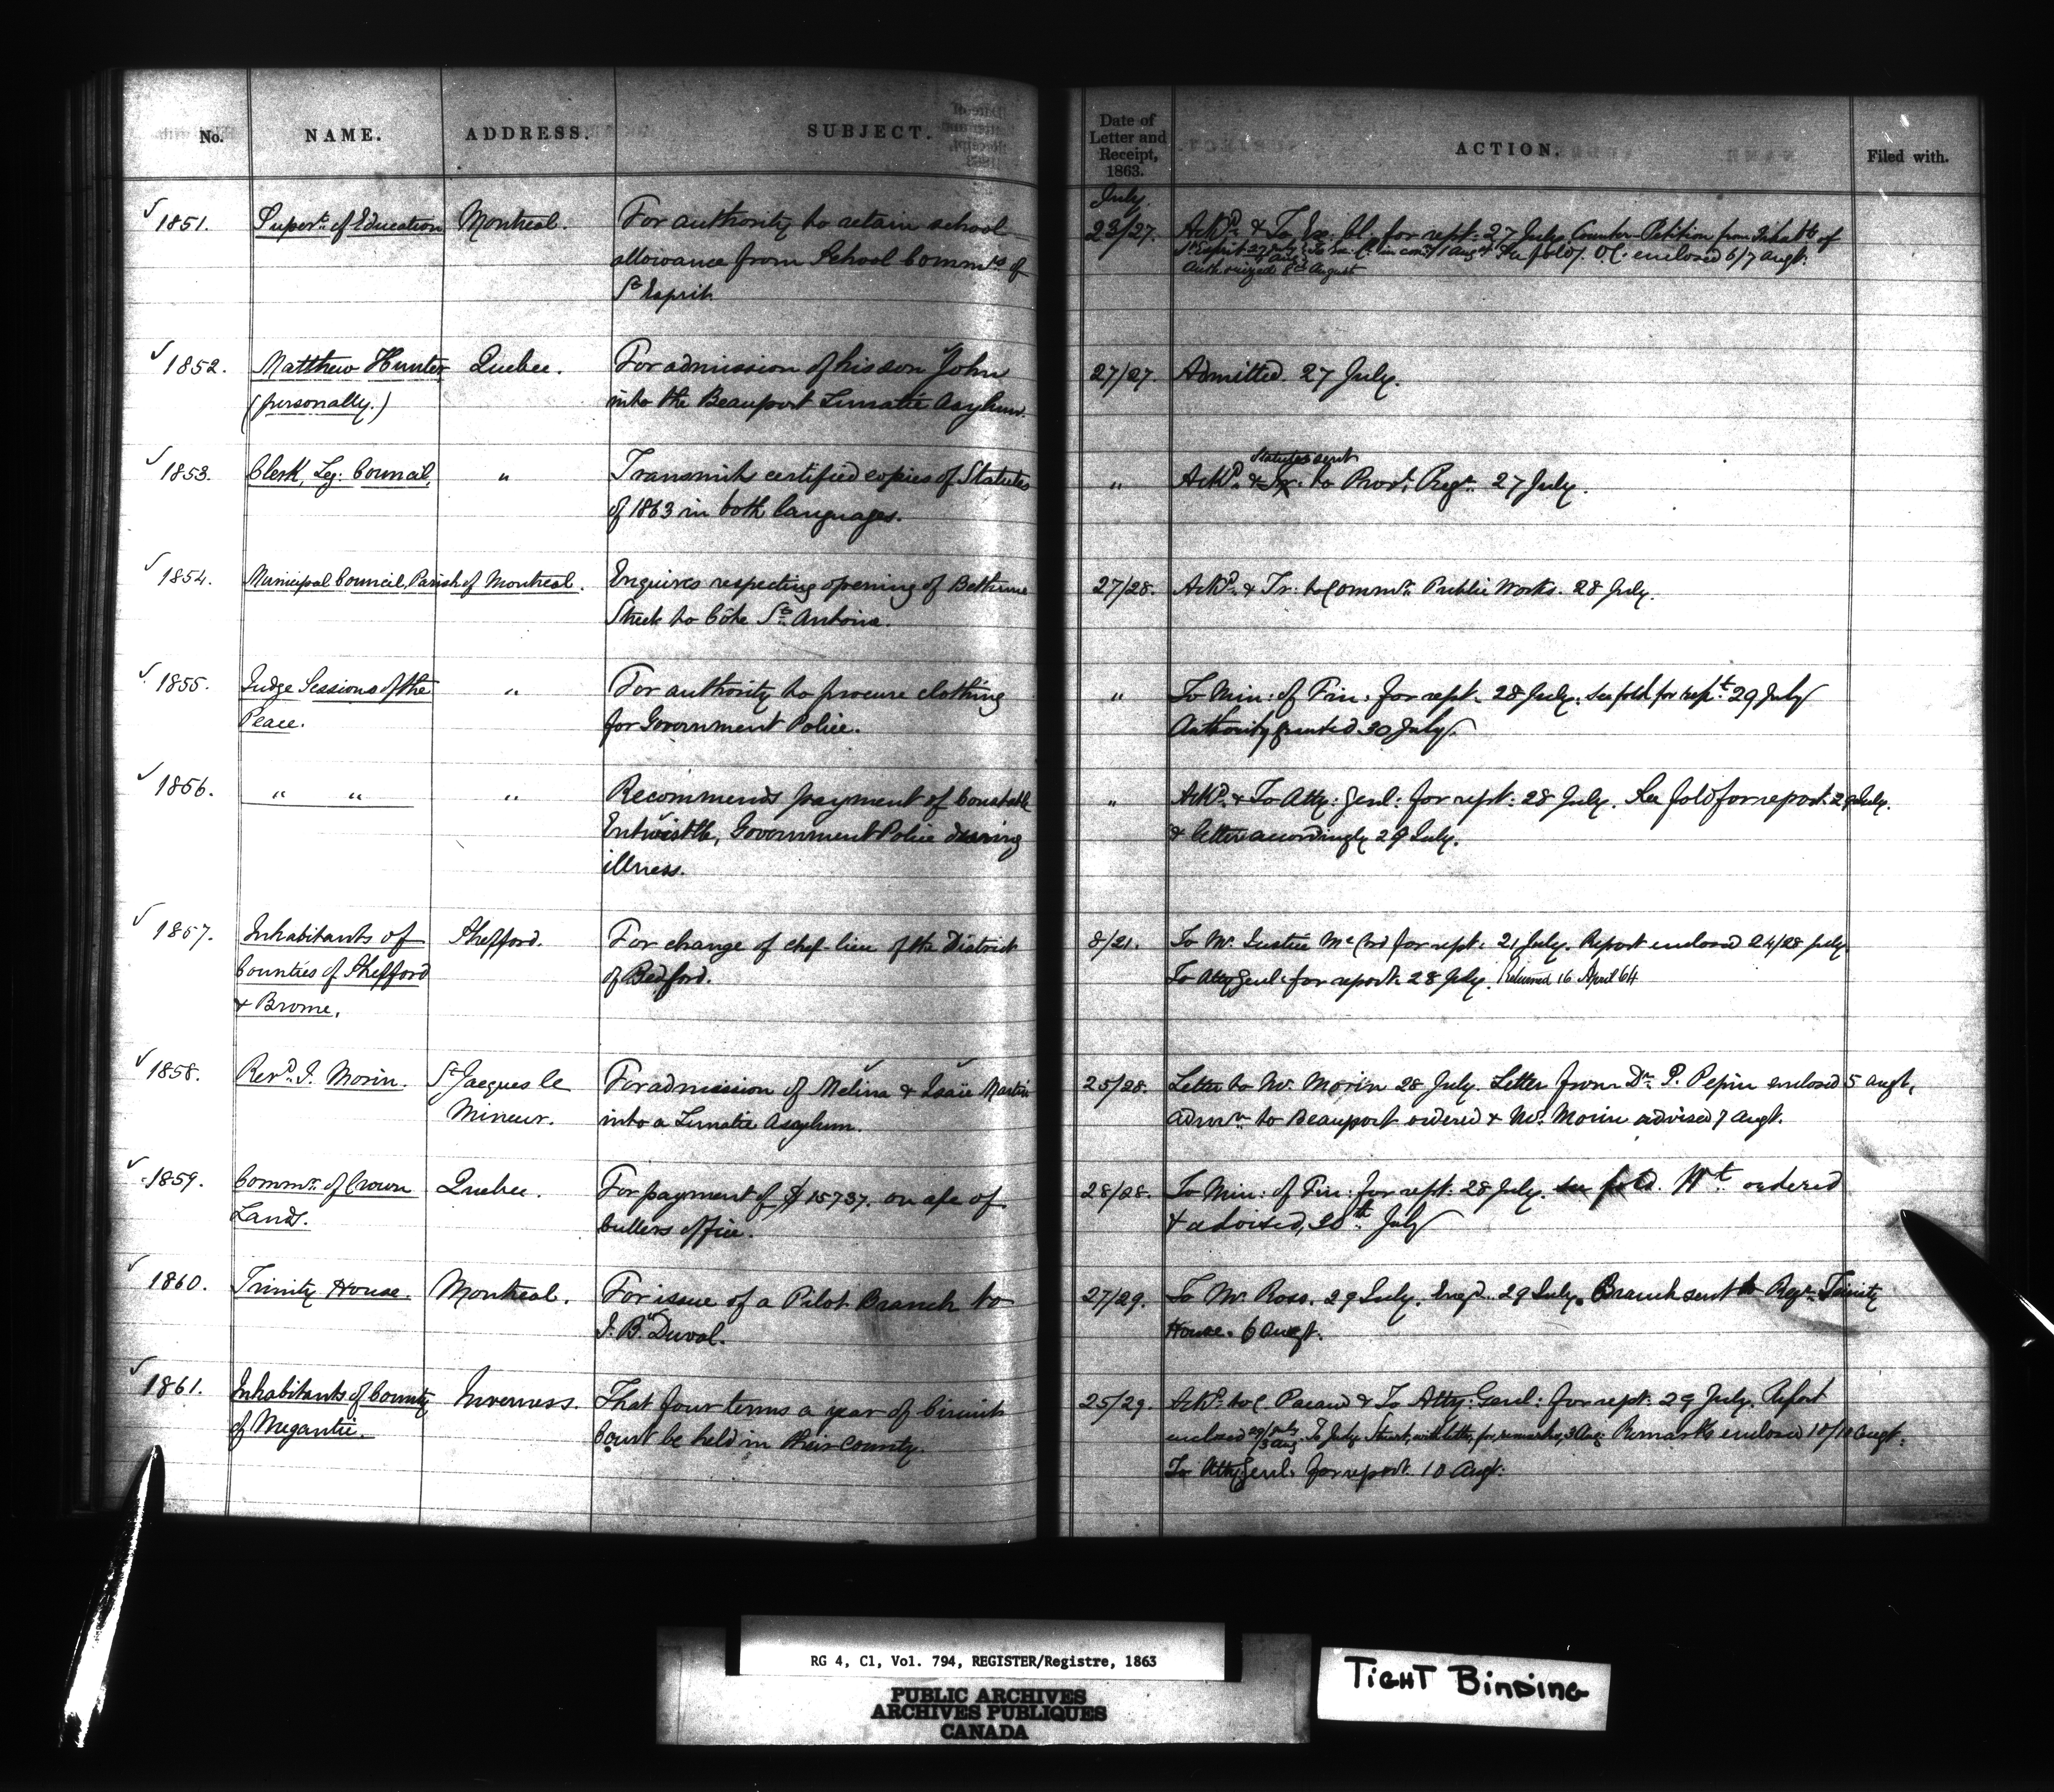 No. NAME. ADDRESS. SUBJECT.
Date of Letter and Receipt, 1863. ACTION. Filed with.
July.
1851. Supert. of Education Montreal. For authority to retain school
allowance from School Commrs of
St Esprit.
23/27. Ackd. & To Ex. Cl. for rept. 27 July. Counter-Petition from Inhabts of
St Esprit 27 July To Ex. Cl. in con. 1 Augt See fold). O.C. enclosed 6/7 Augt.
Authorized 8th August
1852. Matthew Hunter Quebec. For admission of his son John
(personally.) into the Beauport Lunatic Asylum.
27/27. Admitted. 27 July.
1853. Clerk, Leg: Council, " Transmits certified copies of Statutes
of 1863 in both languages.
Statutes sent
" Ackd. & Tr. to Provl. Regr. 27 July.
1854. Municipal Council, Parish of Montreal. Enquires respecting opening of Bethune
Street to Côte St. Antoine.
27/28. Ackd. & Tr. to Commr. Public Works. 28 July.
1855. Judge Sessions of the " For authority to procure clothing
Peace. for Government Police.
" To Min: of Fin: for rept. 28 July. See fold for rept. 29 July
Authority granted 30 July.
1856. " " " Recommends payment of Constable
Entwistle, Government Police during
illness.
" Ackd. & To Atty: Genl: for rept: 28 July. See fold for report. 29 July.
& letter accordingly 29 July.
1857. Inhabitants of Shefford. For change of chef-lieu of the District
Counties of Shefford of Bedford.
& Brome.
8/21. To Mr. Justice McCord for rept. 21 July. Report enclosed 24/28 July
To Atty Genl. for report. 28 July. Returned 16 April 64
1858. Revd. J. Morin. St Jacques le For admission of Melina & Isaïe Martin
Mineur. into a Lunatic Asylum.
25/28. Letter to Mr. Morin 28 July. Letter from Dr. P. Pepin enclosed 5 Augt,
Admn. to Beauport ordered & Mr. Morin advised 7 Augt.
1859. Commr. of Crown Quebec. For payment of $15737. on a/c of
Lands. Cullers office.
28/28. To Min: of Fin: for rept: 28 July. See fold. Wt. ordered
& advised, 28th July
1860. Trinity House. Montreal. For issue of a Pilot Branch to
J. B. Duval.
27/29. To Mr. Ross. 29 July. Engd. 29 July. Branch sent to Regr. Trinity
House. 6 Augt.
1861. Inhabitants of County Inverness. That four terms a year of Circuit
of Megantic. Court be held in their county.
25/29. Ackd. to C. Pacaud & To Atty: Genl: for rept: 29 July. Report
enclosed 29/July 3 Aug. To Judge Stuart, with letter, for remarks, 3 Aug. Remarks enclosed 10/10 Augt.
To Atty Genl. for report. 10 Augt.
RG 4, C1, Vol. 794, REGISTER/Registre, 1863
PUBLIC ARCHIVES
ARCHIVES PUBLIQUES
CANADA
TIGHT BINDING